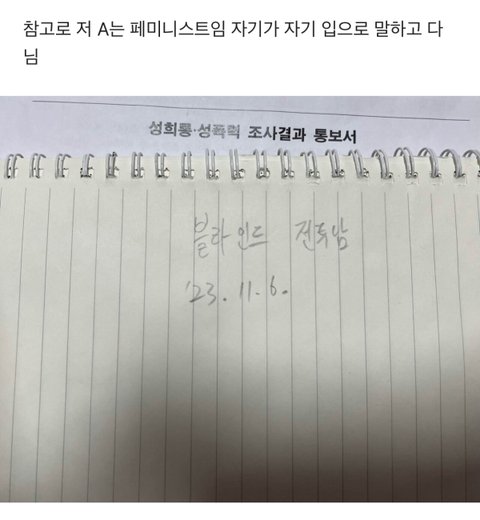 참고로 저 A는 페미니스트임 자기가 자기 입으로 말하고 다
님
성희롱·성폭력 조사결과 통보서
블라인드
'23. 11. 6.